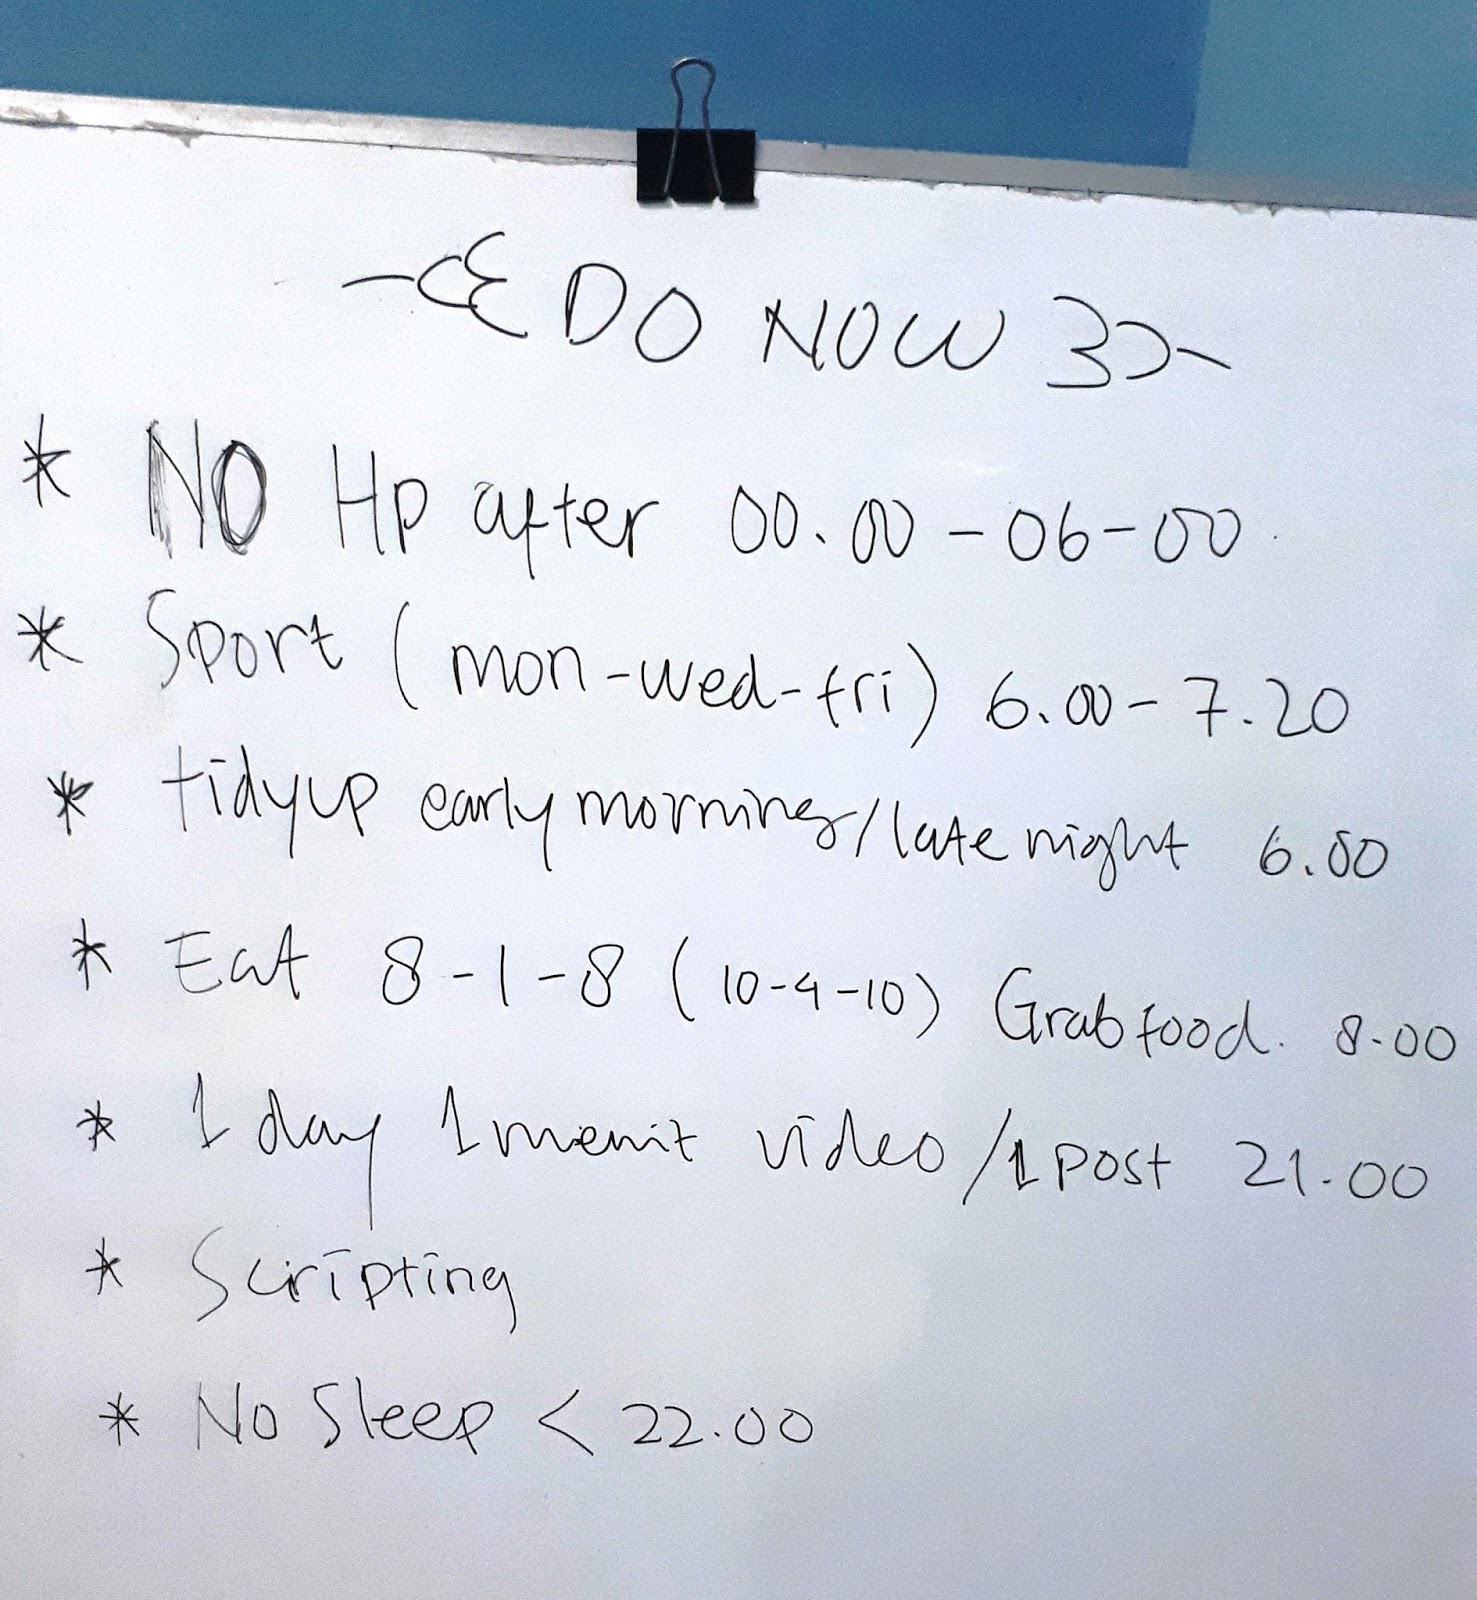 DO NOW
* NO Hp after 00.00 - 06-00
* Sport (mon-wed-fri) 6.00 - 7.20
* tidyup early morning/late night 6.00
* Eat 8-1-8 (10-4-10) Grabfood. 8.00
* 1 day 1 menit video/1 post 21.00
* Scripting
* No Sleep < 22.00